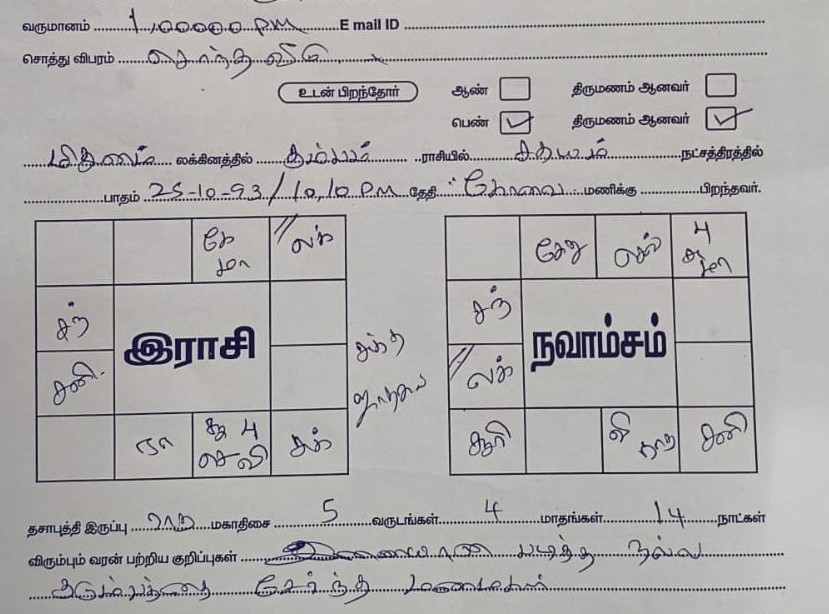 வருமானம் 1,00000 PM E mail ID
சொத்து விபரம் சொந்த வீடு
உடன் பிறந்தோர் ஆண் திருமணம் ஆனவர்
பெண் ✓ திருமணம் ஆனவர் ✓
மிதுனம் லக்கினத்தில் கும்பம் ராசியில் சதயம் நட்சத்திரத்தில்
பாதம் 25-10-93 / 10,10 PM தேதி கோவை மணிக்கு பிறந்தவர்.
கே லக் கேது செவ் 4
மா சு மா
சந் சந்
இராசி நவாம்சம்
சனி லக்
சுத்த ஜாதகம்
ரா சூ 4 சுக் சூரி வி சனி
செ வி ராகு
தசாபுத்தி இருப்பு ராகு மகாதிசை 5 வருடங்கள் 4 மாதங்கள் 14 நாட்கள்
விரும்பும் வரன் பற்றிய குறிப்புகள் இணையான படித்த நல்ல
குடும்பத்தை சேர்ந்த மணமகன்